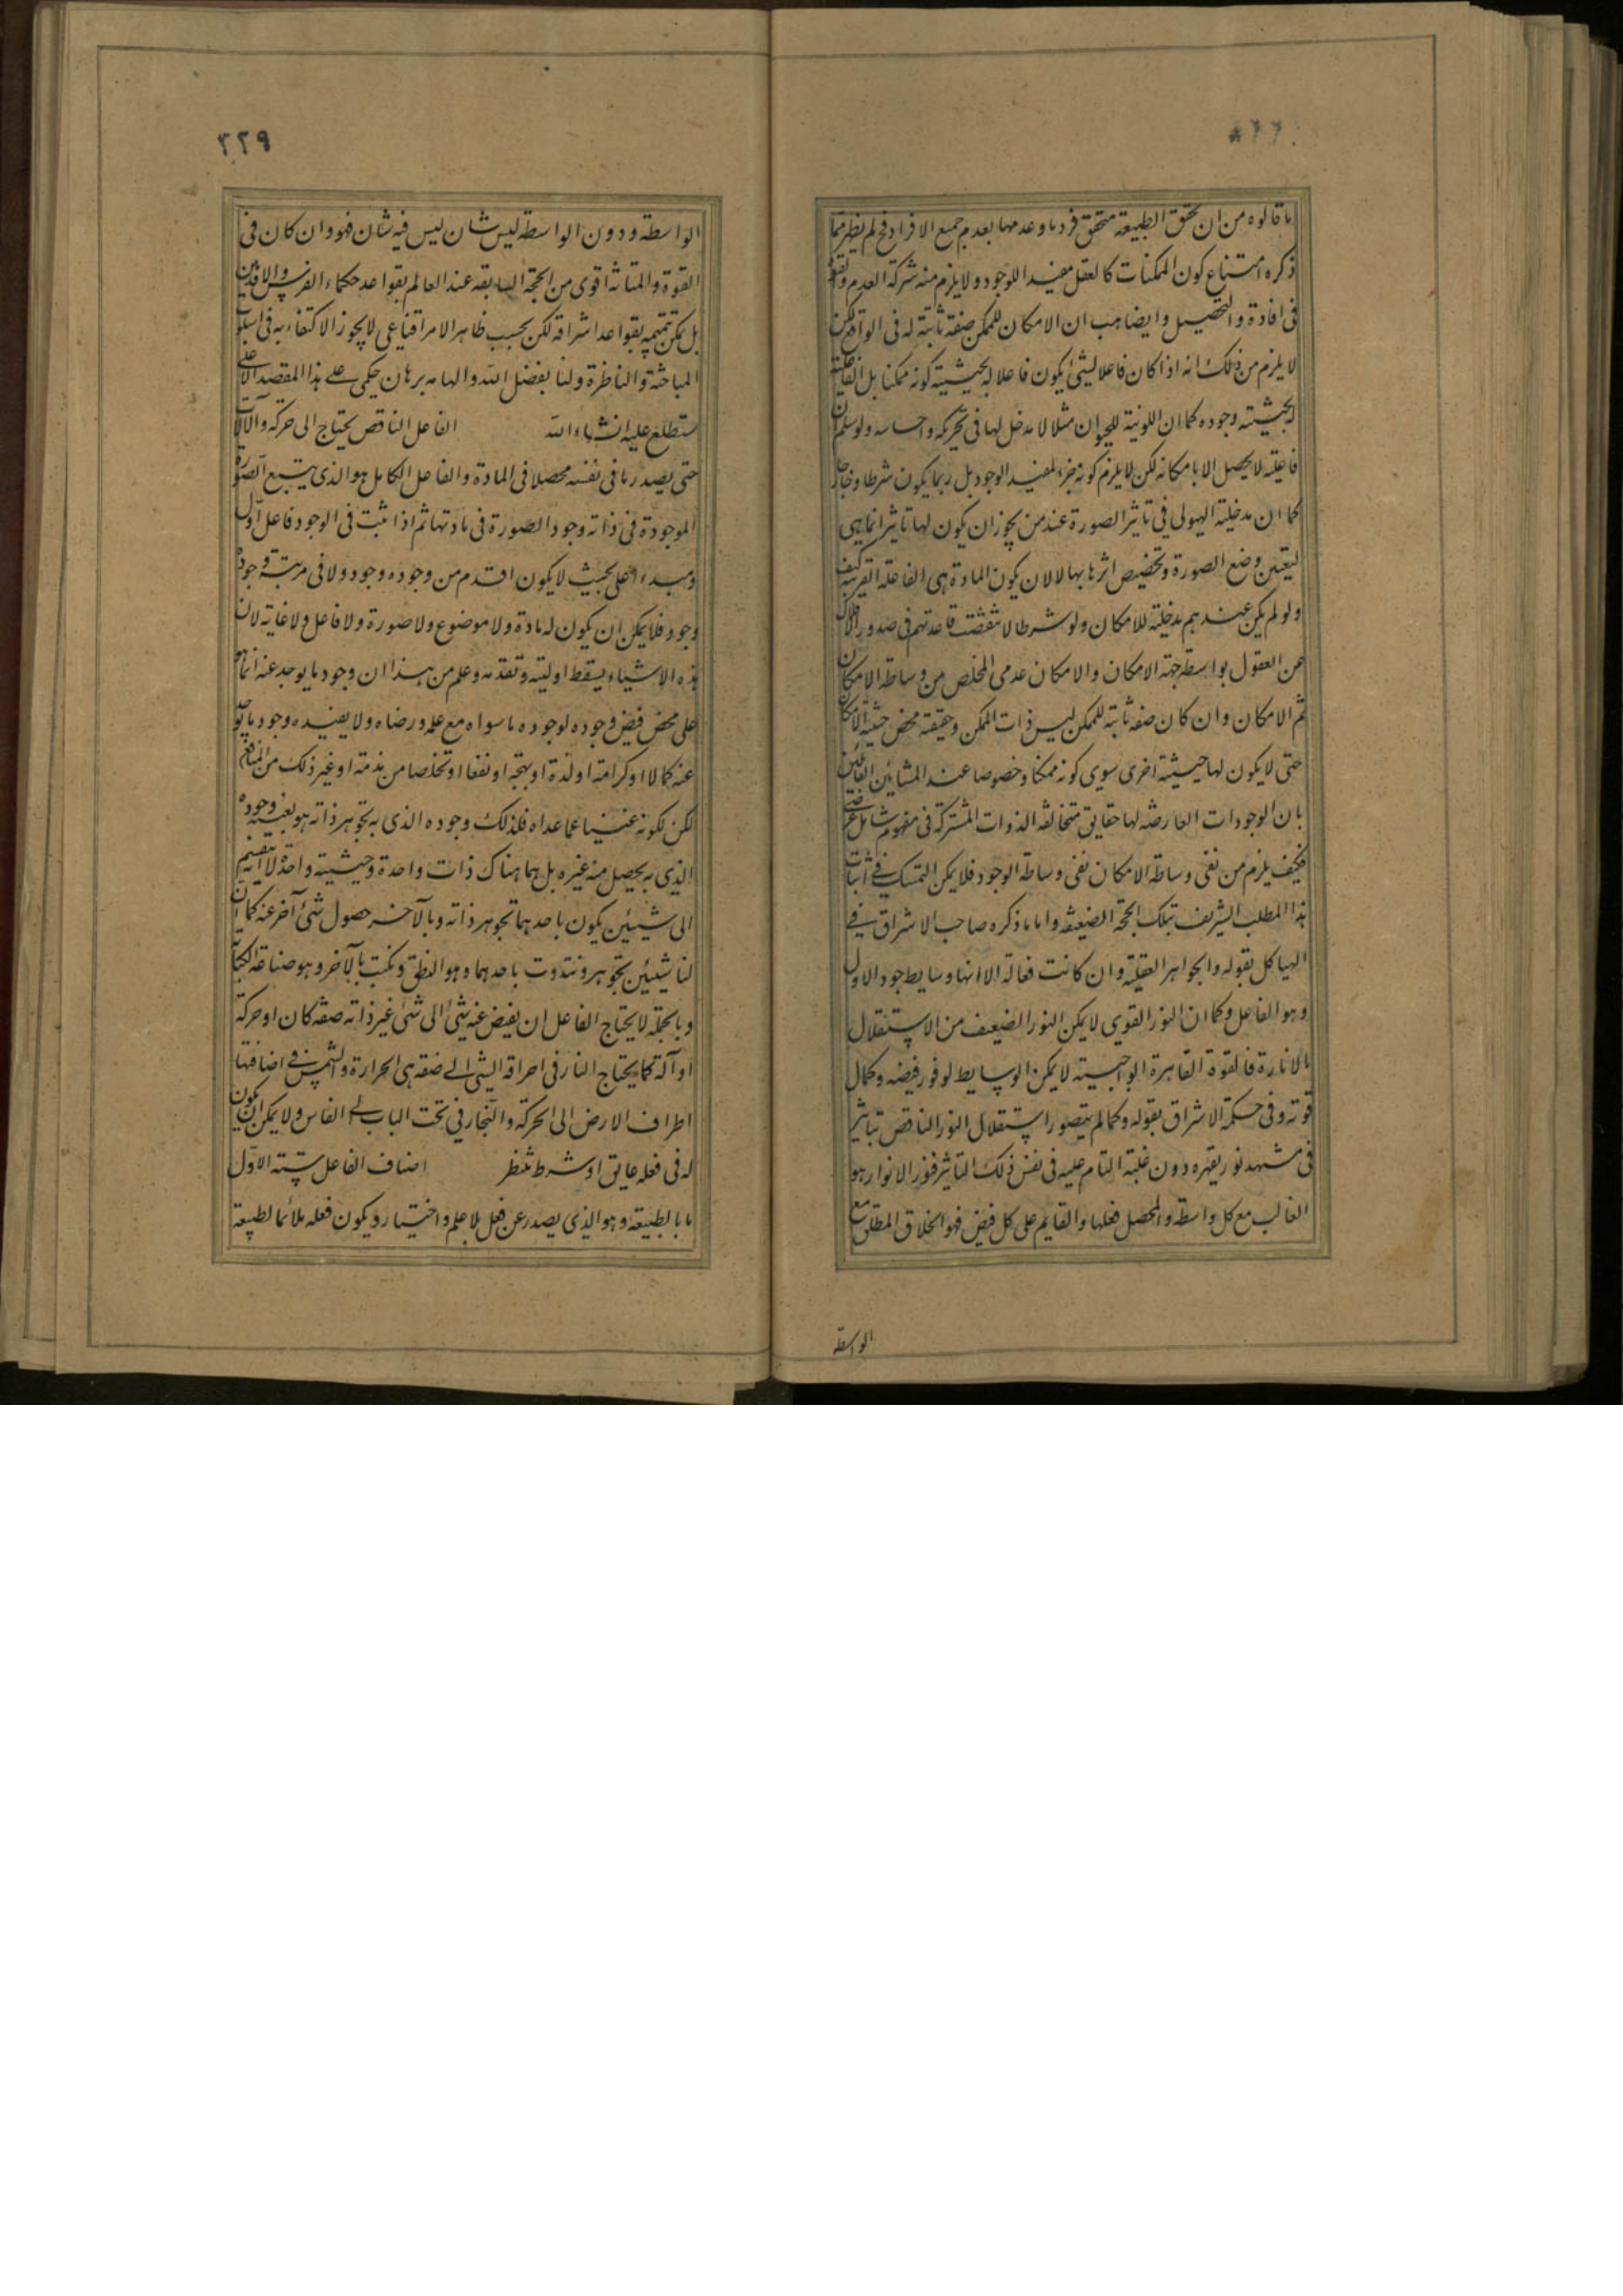 ما قالوه من ان تحقق الطبيعة بتحقق فرد ما وعدمها بعدم جميع الافراد فح لم يظهر مما
ذكره امتناع كون الممكنات كالعقل مفيد اللوجود ولا يلزم منه شركة العدم والقوة
فى افادة والتحصيل وايضا هب ان الامكان للممكن صفة ثابتة له فى الواقع لكن
لا يلزم من ذلك انه اذا كان فاعلا لشئ يكون فاعلا له بحيثية كونه ممكنا بل الفاعلية
له بحيثية وجوده كما ان اللونية للحيوان مثلا لا مدخل لها فى تحريكه واحساسه ولو سلم ان
فاعليته لا يحصل الا بامكانه لكن لا يلزم كونه جزء لمفيد الوجود بل ربما يكون شرطا وخارجا
كما ان مدخلية الهيولى فى تاثير الصورة عند من يجوز ان يكون لها تاثير انما هى
لتعين وضع الصورة وتخصيص اثرها بها لا لان يكون المادة هى الفاعلة القريبة كيف
ولو لم يكن عندهم مدخلية للامكان ولو شرطا لانتقضت قاعدتهم فى صدور الافلاك
عن العقول بواسطة جهة الامكان والامكان عدمى المخلص من وساطة الامكان
ثم الامكان وان كان صفة ثابتة للممكن ليس ذات الممكن وحقيقته محض حيثية الامكان
حتى لا يكون لها حيثية اخرى سوى كونه ممكنا وخصوصا عند المشائين القائلين
بان الوجودات العارضة لها حقايق متخالفة الذوات المشتركة فى مفهوم شامل عرضى
فكيف يلزم من نفى وساطة الامكان نفى وساطة الوجود فلا يمكن التمسك فى اثبات
هذا المطلب الشريف بتلك الحجة الضعيفة واما ما ذكره صاحب الاشراق فى
الهياكل بقوله والجواهر العقلية وان كانت فعالة الا انها وسايط جود الاول
وهو الفاعل وكما ان النور القوى لا يمكن النور الضعيف من الاستقلال
بالانارة فالقوة القاهرة الواجبية لا يمكن الوسايط لوفور فيضه وكمال
قوته وفى حكمة الاشراق بقوله وكما لم يتصور استقلال النور الناقص بتاثير
فى مشهد نور يقهره دون غلبة التام عليه فى نفس ذلك التاثير فنور الانوار هو
الغالب مع كل واسطة والمحصل فعلها والقايم على كل فيض فهو الخلاق المطلق مع
الواسطة
٢٢٩
الواسطة ودون الواسطة ليس شان ليس فيه شان فهو وان كان فى
القوة والمتانة اقوى من الحجة السابقة عند العالم بقواعد حكماء الفرس والاقدمين
بل يمكن تتميمه بقواعد اشراقية لكن بحسب ظاهر الامر اقناعى لا يجوز الاكتفاء به فى اسلوب
المباحثة والناظرة ولنا بفضل الله والهامه برهان حكمى على هذا المقصد الاعلى
ستطلع عليه انشاء الله الفاعل الناقص يحتاج الى حركة وآلات
حتى يصدر ما فى نفسه محصلا فى المادة والفاعل الكامل هو الذى يتبع الصورة
الموجودة فى ذاته وجود الصورة فى مادتها ثم اذا ثبت فى الوجود فاعل اول
ومبدء اعلى بحيث لا يكون اقدم من وجوده وجود ولا فى مرتبة وجوده
وجود فلا يمكن ان يكون له مادة ولا موضوع ولا صورة ولا فاعل ولا غاية لان
هذه الاشياء يسقط اوليته وتقدمه وعلم من هذا ان وجود ما يوجد عنه انما هو
على محض فيض وجوده لوجود ما سواه مع علمه ورضاه ولا يفيده وجود ما يوجد
عنه كمالا او كرامة او لذة او بهجة او نفعا او تخلصا من مذمة او غير ذلك من المنافع
لكن لكونه غنيا عما عداه فلذلك وجوده الذى به تجوهر ذاته هو بعينه وجوده
الذى به يحصل منه غيره بل هما هناك ذات واحدة وحيثية واحدة لا انه ينقسم
الى شيئين يكون باحدهما تجوهر ذاته وبالآخر حصول شئ آخر عنه كما ان
لنا شيئين نتجوهر ونتذوت باحدهما وهو النطق ونكتب بالآخر وهو صناعة الكتابة
وبالجملة لا يحتاج الفاعل ان يفيض عنه شئ الى شئ غير ذاته صفة كان او حركة
او آلة كما يحتاج النار فى احراقه الشئ الى صفة هى الحرارة والشمس فى اضائتها
اطراف الارض الى الحركة والنجار فى نحت الباب الى الفاس ولا يمكن ان يكون
له فى فعله عايق او شرط منتظر اصناف الفاعل ستة الاول
ما بالطبيعة وهو الذى يصدر عن فعل بلا علم واختيار ويكون فعله ملائما لطبيعة